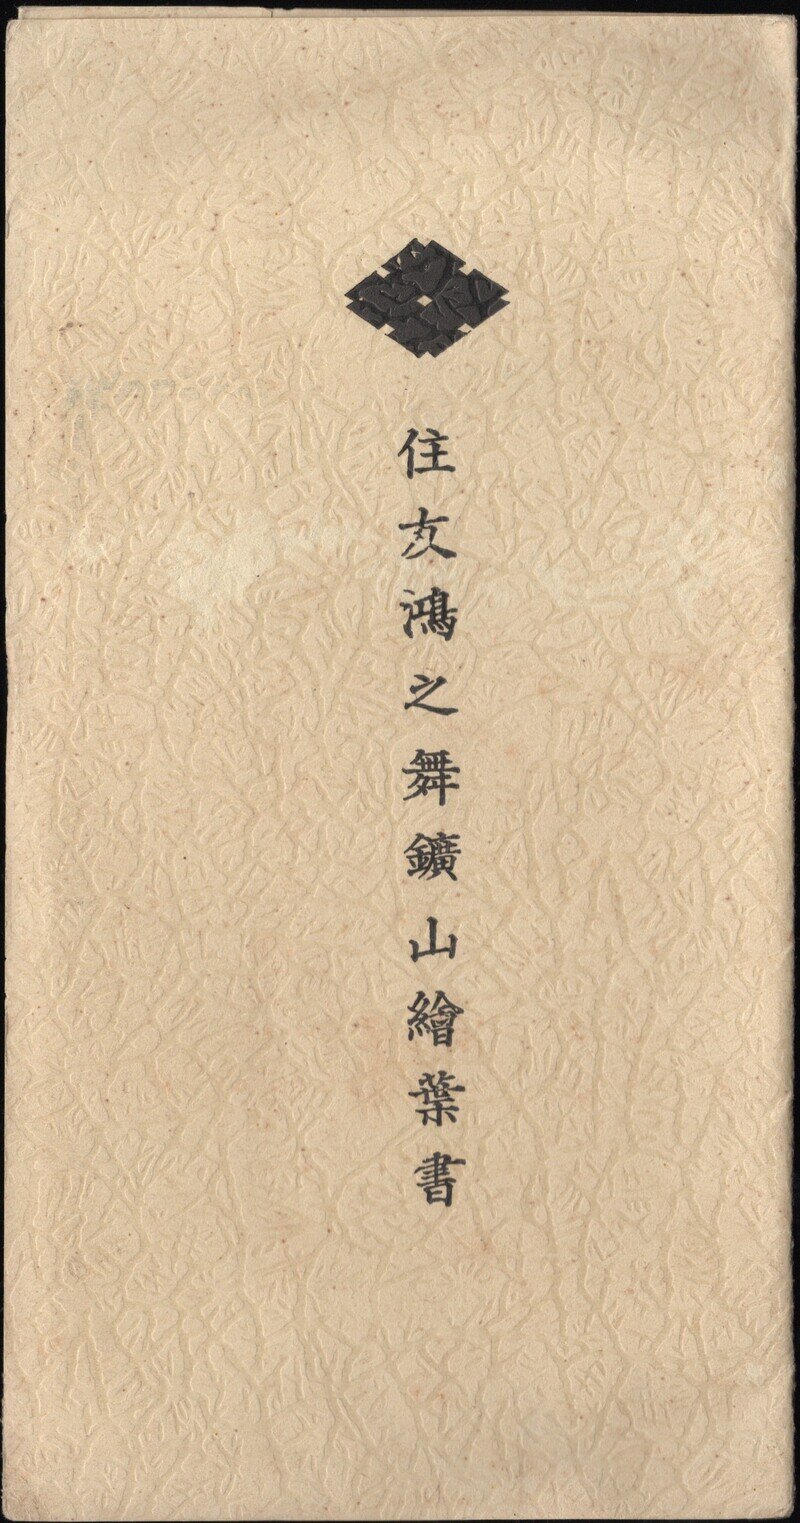 住友鴻之舞鑛山繪葉書